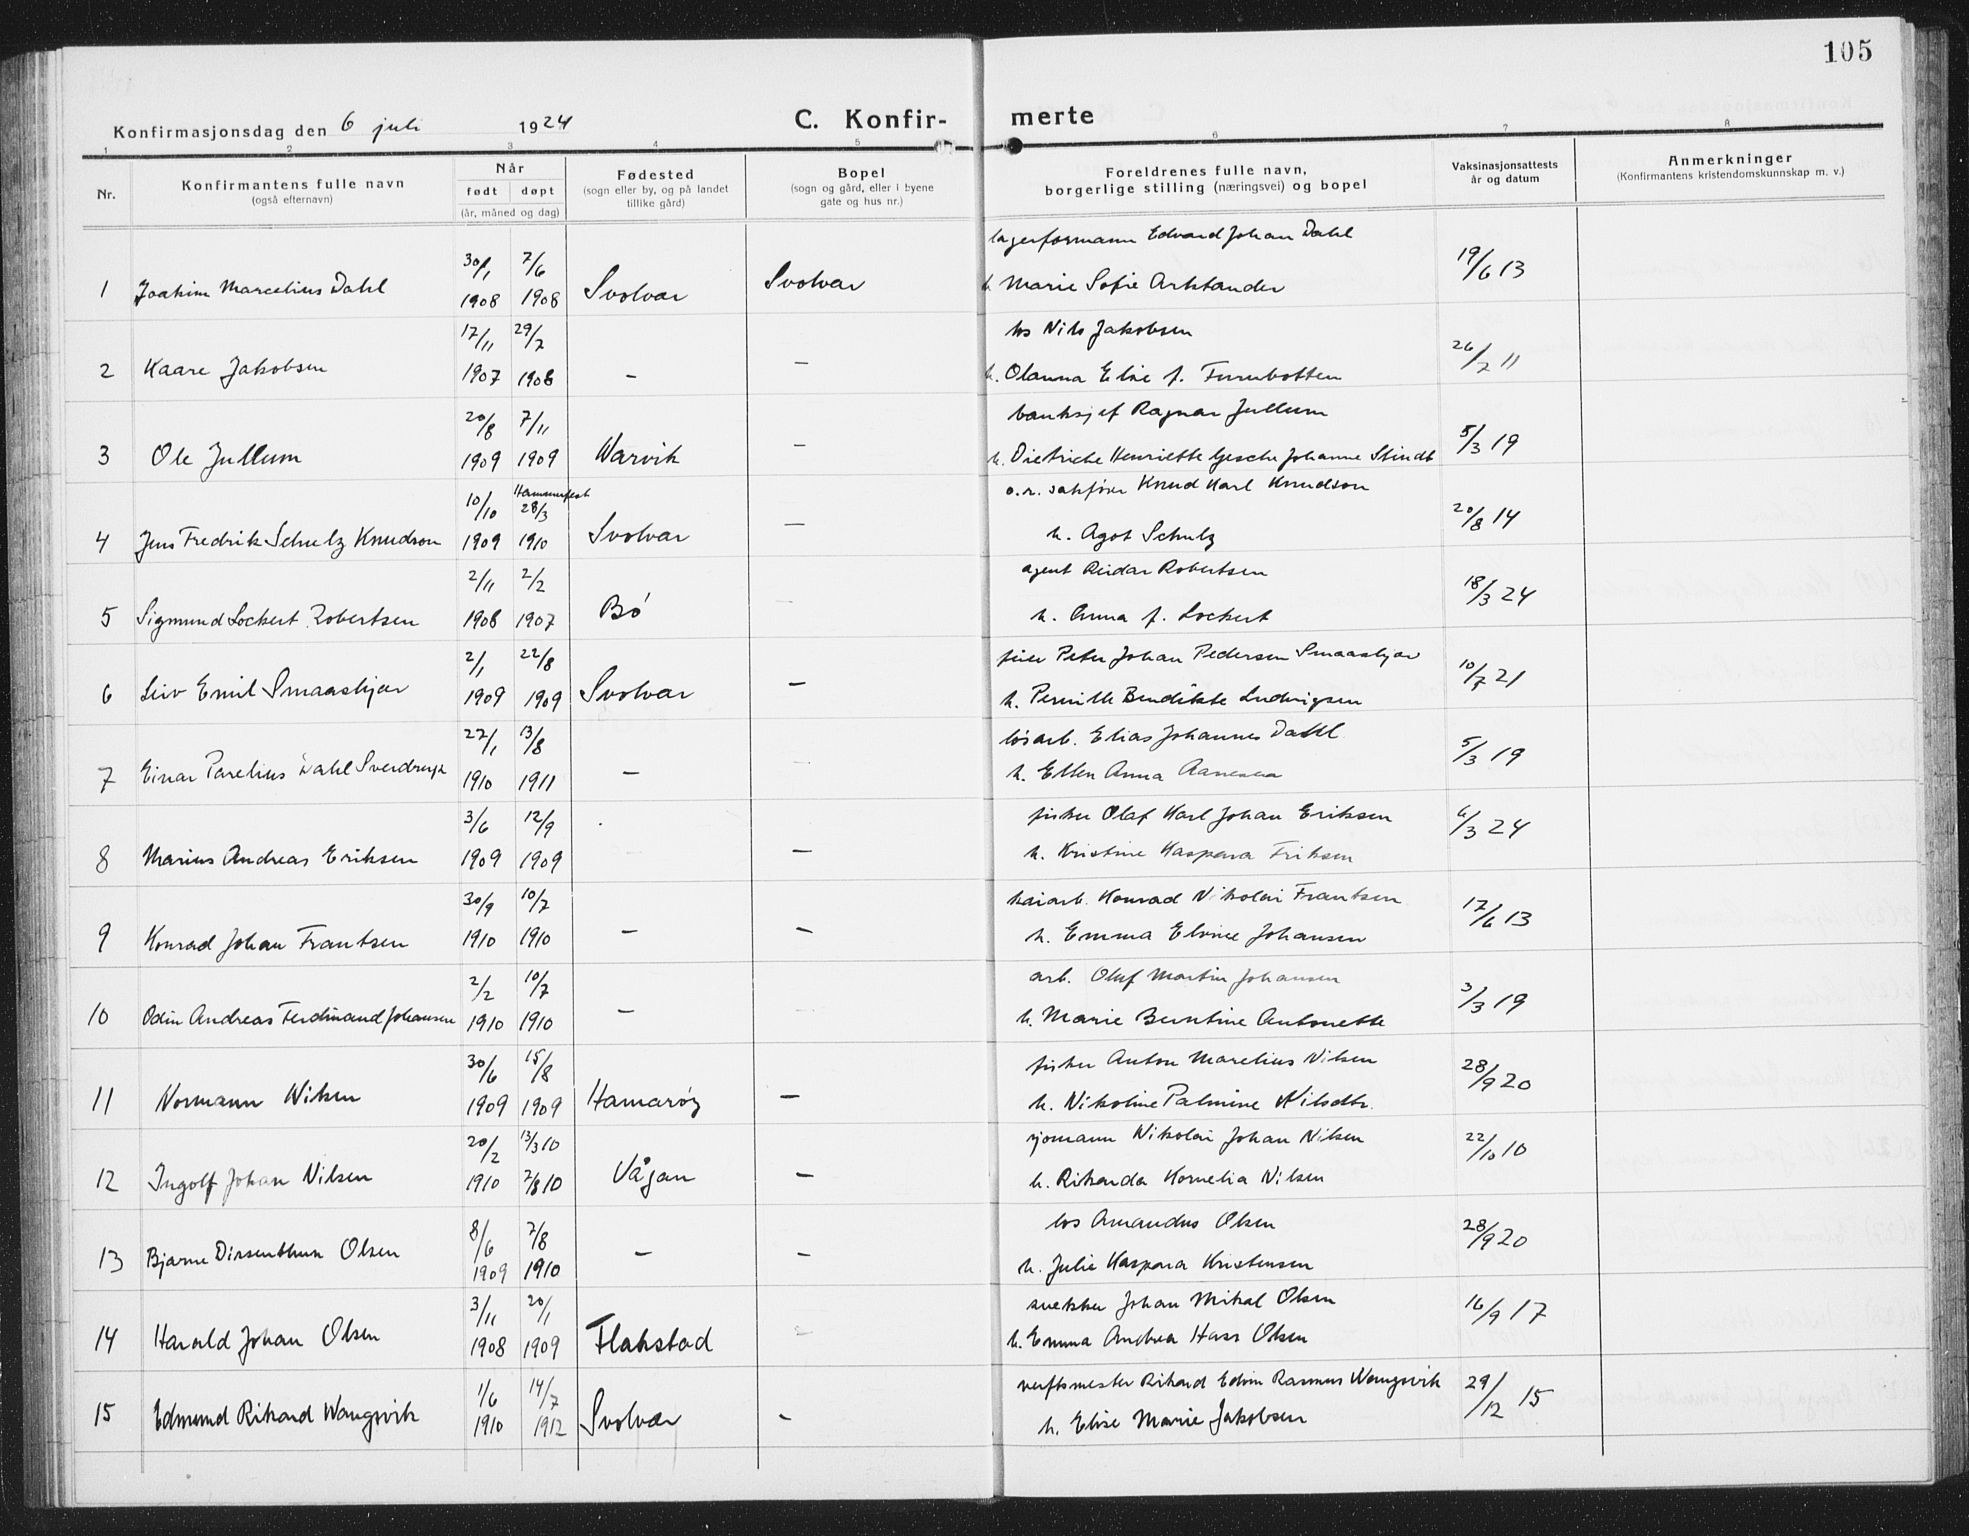 105
Konfirmasjonsdag den 6 juli 1924
C. Konfir- merte
1 2 3 4 5 6 7 8
Nr.
Konfirmantens fulle navn
(også efternavn)
Når
født døpt
(år, måned og dag)
Fødested
(sogn eller by, og på landet
tillike gård)
Bopel
(sogn og gård, eller i byene
gate og hus nr.)
Foreldrenes fulle navn,
borgerlige stilling (næringsvei) og bopel
Vaksinasjonsattests
år og datum
Anmerkninger
(Konfirmantens kristendomskunnskap m. v.)
30/1 7/6 lagerformann Edvard Johan Dahl
1 Joakim Marcelius Dahl 1908 1908 Svolvær Svolvær h. Marie Sofie Arktander 19/6 13
17/11 29/7 los Nils Jakobsen
2 Kaare Jakobsen 1907 1908 – – h. Olanna Elise f. Furubotten 26/7 11
20/8 7/11 banksjef Ragnar Jullum
3 Ole Jullum 1909 1909 Narvik – h. Dietriche Henriette Gesche Johanne Stindt 5/3 19
10/10 Hammerfest 28/3 o.r. sakfører Knud Karl Knudson
4 Jens Fredrik Schulz Knudson 1909 1910 Svolvær – h. Agot Schulz 20/8 14
2/11 2/2 agent Reidar Robertsen
5 Sigmund Lockert Robertsen 1908 1907 Bø – h. Anna f. Lockert 18/3 24
2/1 22/8 Peter Johan Pedersen Smaaskjær
6 Leiv Emil Smaaskjær 1909 1909 Svolvær – h. Pernille Bendikte Ludvigsen 10/7 21
27/1 13/8 løsarb. Elias Johannes Dahl
7 Einar Parelius Dahl Sverdrup 1910 1911 – – h. Ellen Anna Aanesen 5/3 19
3/6 12/9 fisker Olaf Karl Johan Eriksen
8 Marius Andreas Eriksen 1909 1909 – – h. Kristine Kaspara Eriksen 6/3 24
30/9 10/7 kaiarb. Konrad Nikolai Frantsen
9 Konrad Johan Frantsen 1910 1910 – – h. Emma Elvine Johansen 17/6 13
2/2 10/7 arb. Oluf Martin Johansen
10 Odin Andreas Ferdinand Johansen 1910 1910 – – h. Marie Berntine Antonette 3/3 19
30/6 15/8 fisker Anton Marelius Nilsen
11 Normann Nilsen 1909 1909 Hamarøy – h. Nikoline Palmine Nilsdtr. 28/9 20
20/2 13/3 10 sjømann Nikolai Johan Nilsen
12 Ingolf Johan Nilsen 1910 7/8 10 Vågan – h. Rikarda Kornelia Nilsen 22/10 10
8/6 7/8 los Amandus Olsen
13 Bjarne Dissenthun Olsen 1909 1910 – – h. Julie Kaspara Kristensen 28/9 20
3/11 20/1 snekker Johan Mikal Olsen
14 Harald Johan Olsen 1908 1909 Flakstad – h. Emma Andrea Hass Olsen 16/9 17
1/6 14/7 verftsmester Rikard Edvin Rasmus Wangsvik
15 Edmund Rikard Wangsvik 1910 1912 Svolvær – h. Elise Marie Jakobsen 29/12 15